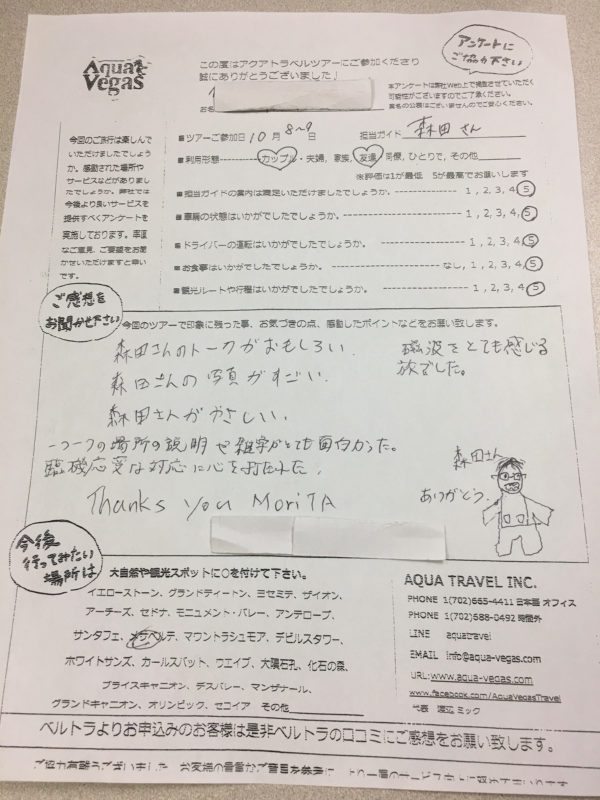 Aqua Vegas
この度はアクアトラベルツアーにご参加くださり
誠にありがとうございました♩
アンケートに
ご協力下さい
お名
本アンケートは弊社Web上で掲載させていただく
可能性がございますのでご了承ください。
実名の公表はございませんのでご安心ください。
今回のご旅行は楽しんで
いただけましたでしょう
か。感動された場所や
サービスなどがありまし
たでしょうか。弊社では
今後より良いサービスを
提供すべくアンケートを
実施しております。率直
なご意見、ご要望をお聞
かせいただけますと幸い
です。
■ツアーご参加日 10 月 8~9 日 担当ガイド 森田 さん
■利用形態 カップル・夫婦、家族、友達、同僚、ひとりで、その他
※評価は1が最低 5が最高でお願いします
■担当ガイドの案内は満足いただけましたでしょうか。 1 , 2, 3, 4, 5
■車輌の状態はいかがでしたでしょうか。 1 , 2, 3, 4, 5
■ドライバーの運転はいかがでしたでしょうか。 1 , 2, 3, 4, 5
■お食事はいかがでしたでしょうか。 なし, 1 , 2, 3, 4, 5
■観光ルートや行程はいかがでしたでしょうか。 1 , 2, 3, 4, 5
ご感想を
お聞かせ下さい
今回のツアーで印象に残った事、お気づきの点、感動したポイントなどをお願い致します。
森田さんのトークがおもしろい.
森田さんの写真がすごい.
森田さんがやさしい.
一つ一つの場所の説明や雑学がとても面白かった。
臨機応変な対応に心を打たれた.
Thanks You MoriTA
磁波をとても感じる
旅でした。
森田さん
ありがとう.
今後
行ってみたい
場所は
大自然や観光スポットに○を付けて下さい。
イエローストーン、グランドティートン、ヨセミテ、ザイオン、
アーチーズ、セドナ、モニュメント・バレー、アンテロープ、
サンタフェ、メサベルデ、マウントラシュモア、デビルスタワー、
ホワイトサンズ、カールスバット、ウエイブ、大隕石孔、化石の森、
ブライスキャニオン、デスバレー、マンザナール、
グランドキャニオン、オリンピック、セコイア その他
AQUA TRAVEL INC.
PHONE 1(702)665-4411 日本語 オフィス
PHONE 1(702)688-0492 時間外
LINE aquatravel
EMAIL info@aqua-vegas.com
URL:www.aqua-vegas.com
www.facebook.com/AquaVegasTravel
代表 渡辺 ミック
ベルトラよりお申込みのお客様は是非ベルトラの口コミにご感想をお願い致します。